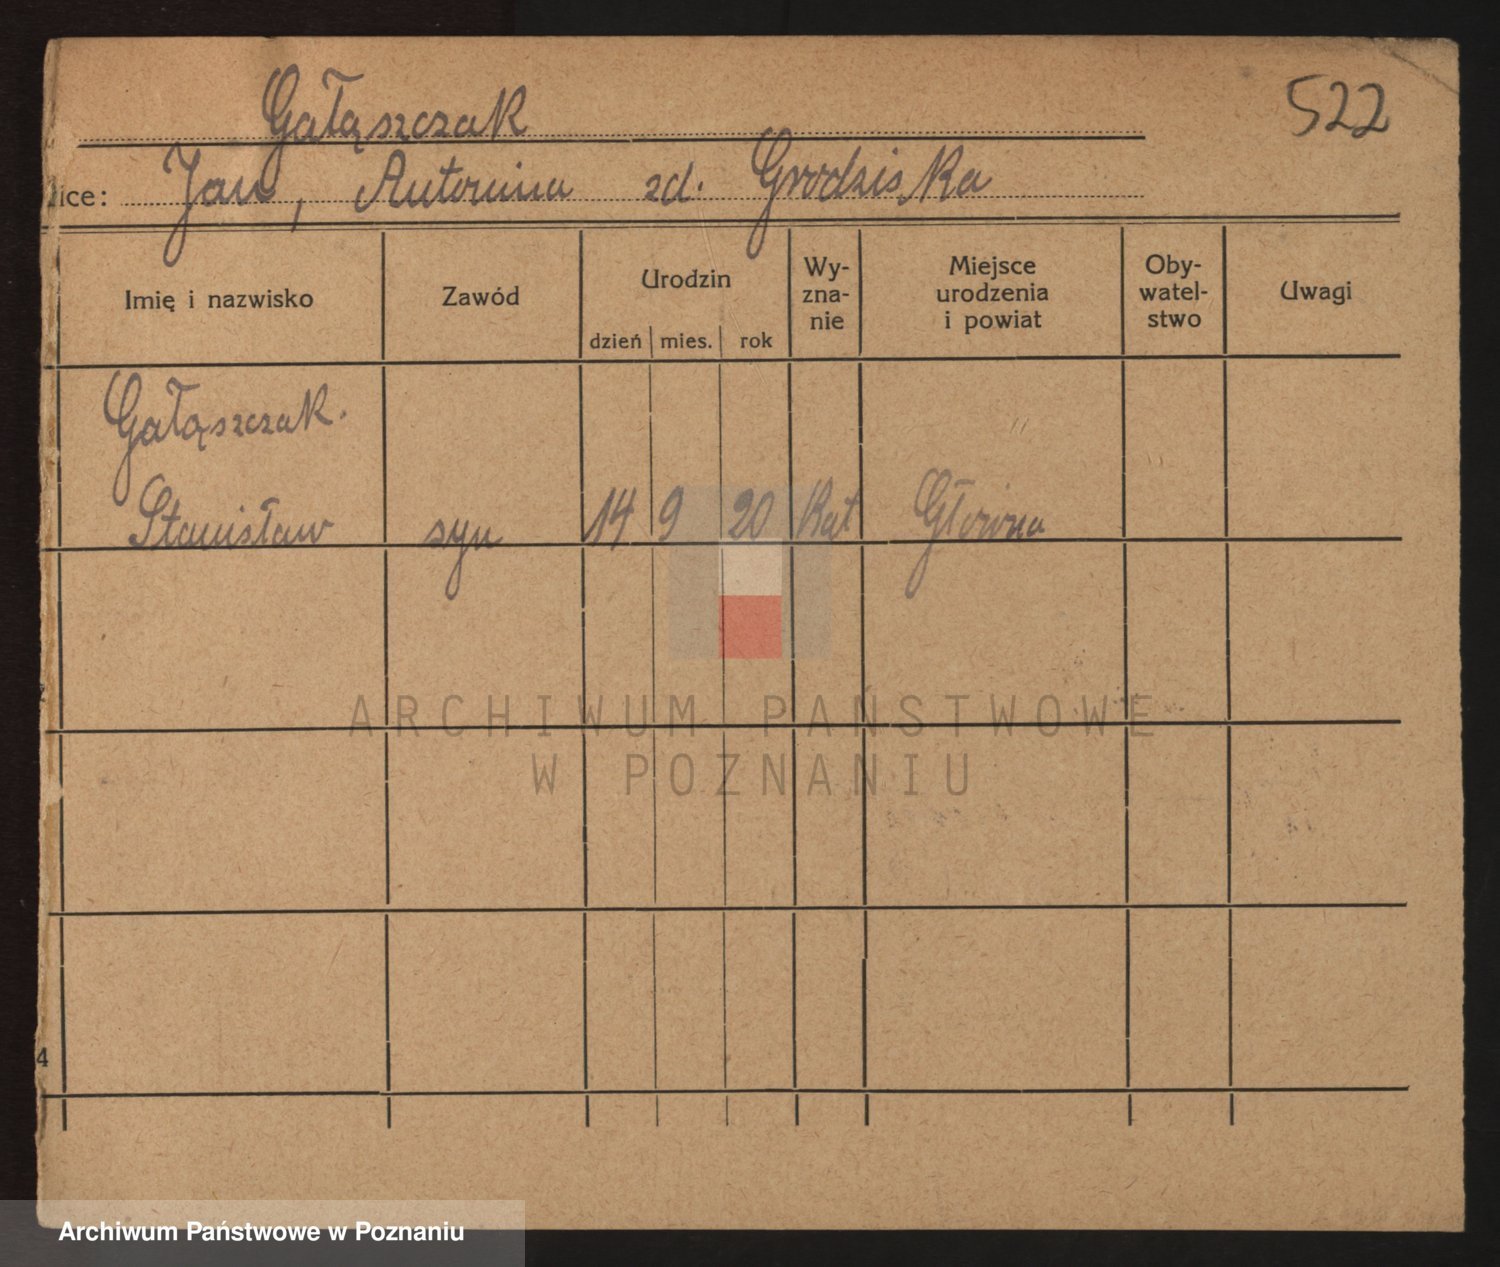 Gałąszczak
522
lice: Jan, Antonina zd. Grodziska
Imię i nazwisko
Zawód
Urodzin
dzień mies. rok
Wy-
zna-
nie
Miejsce
urodzenia
i powiat
Oby-
watel-
stwo
Uwagi
Gałąszczak.
Stanisław syn 14 9 20 Kat Główna
ARCHIWUM PAŃSTWOWE
W POZNANIU
4
Archiwum Państwowe w Poznaniu